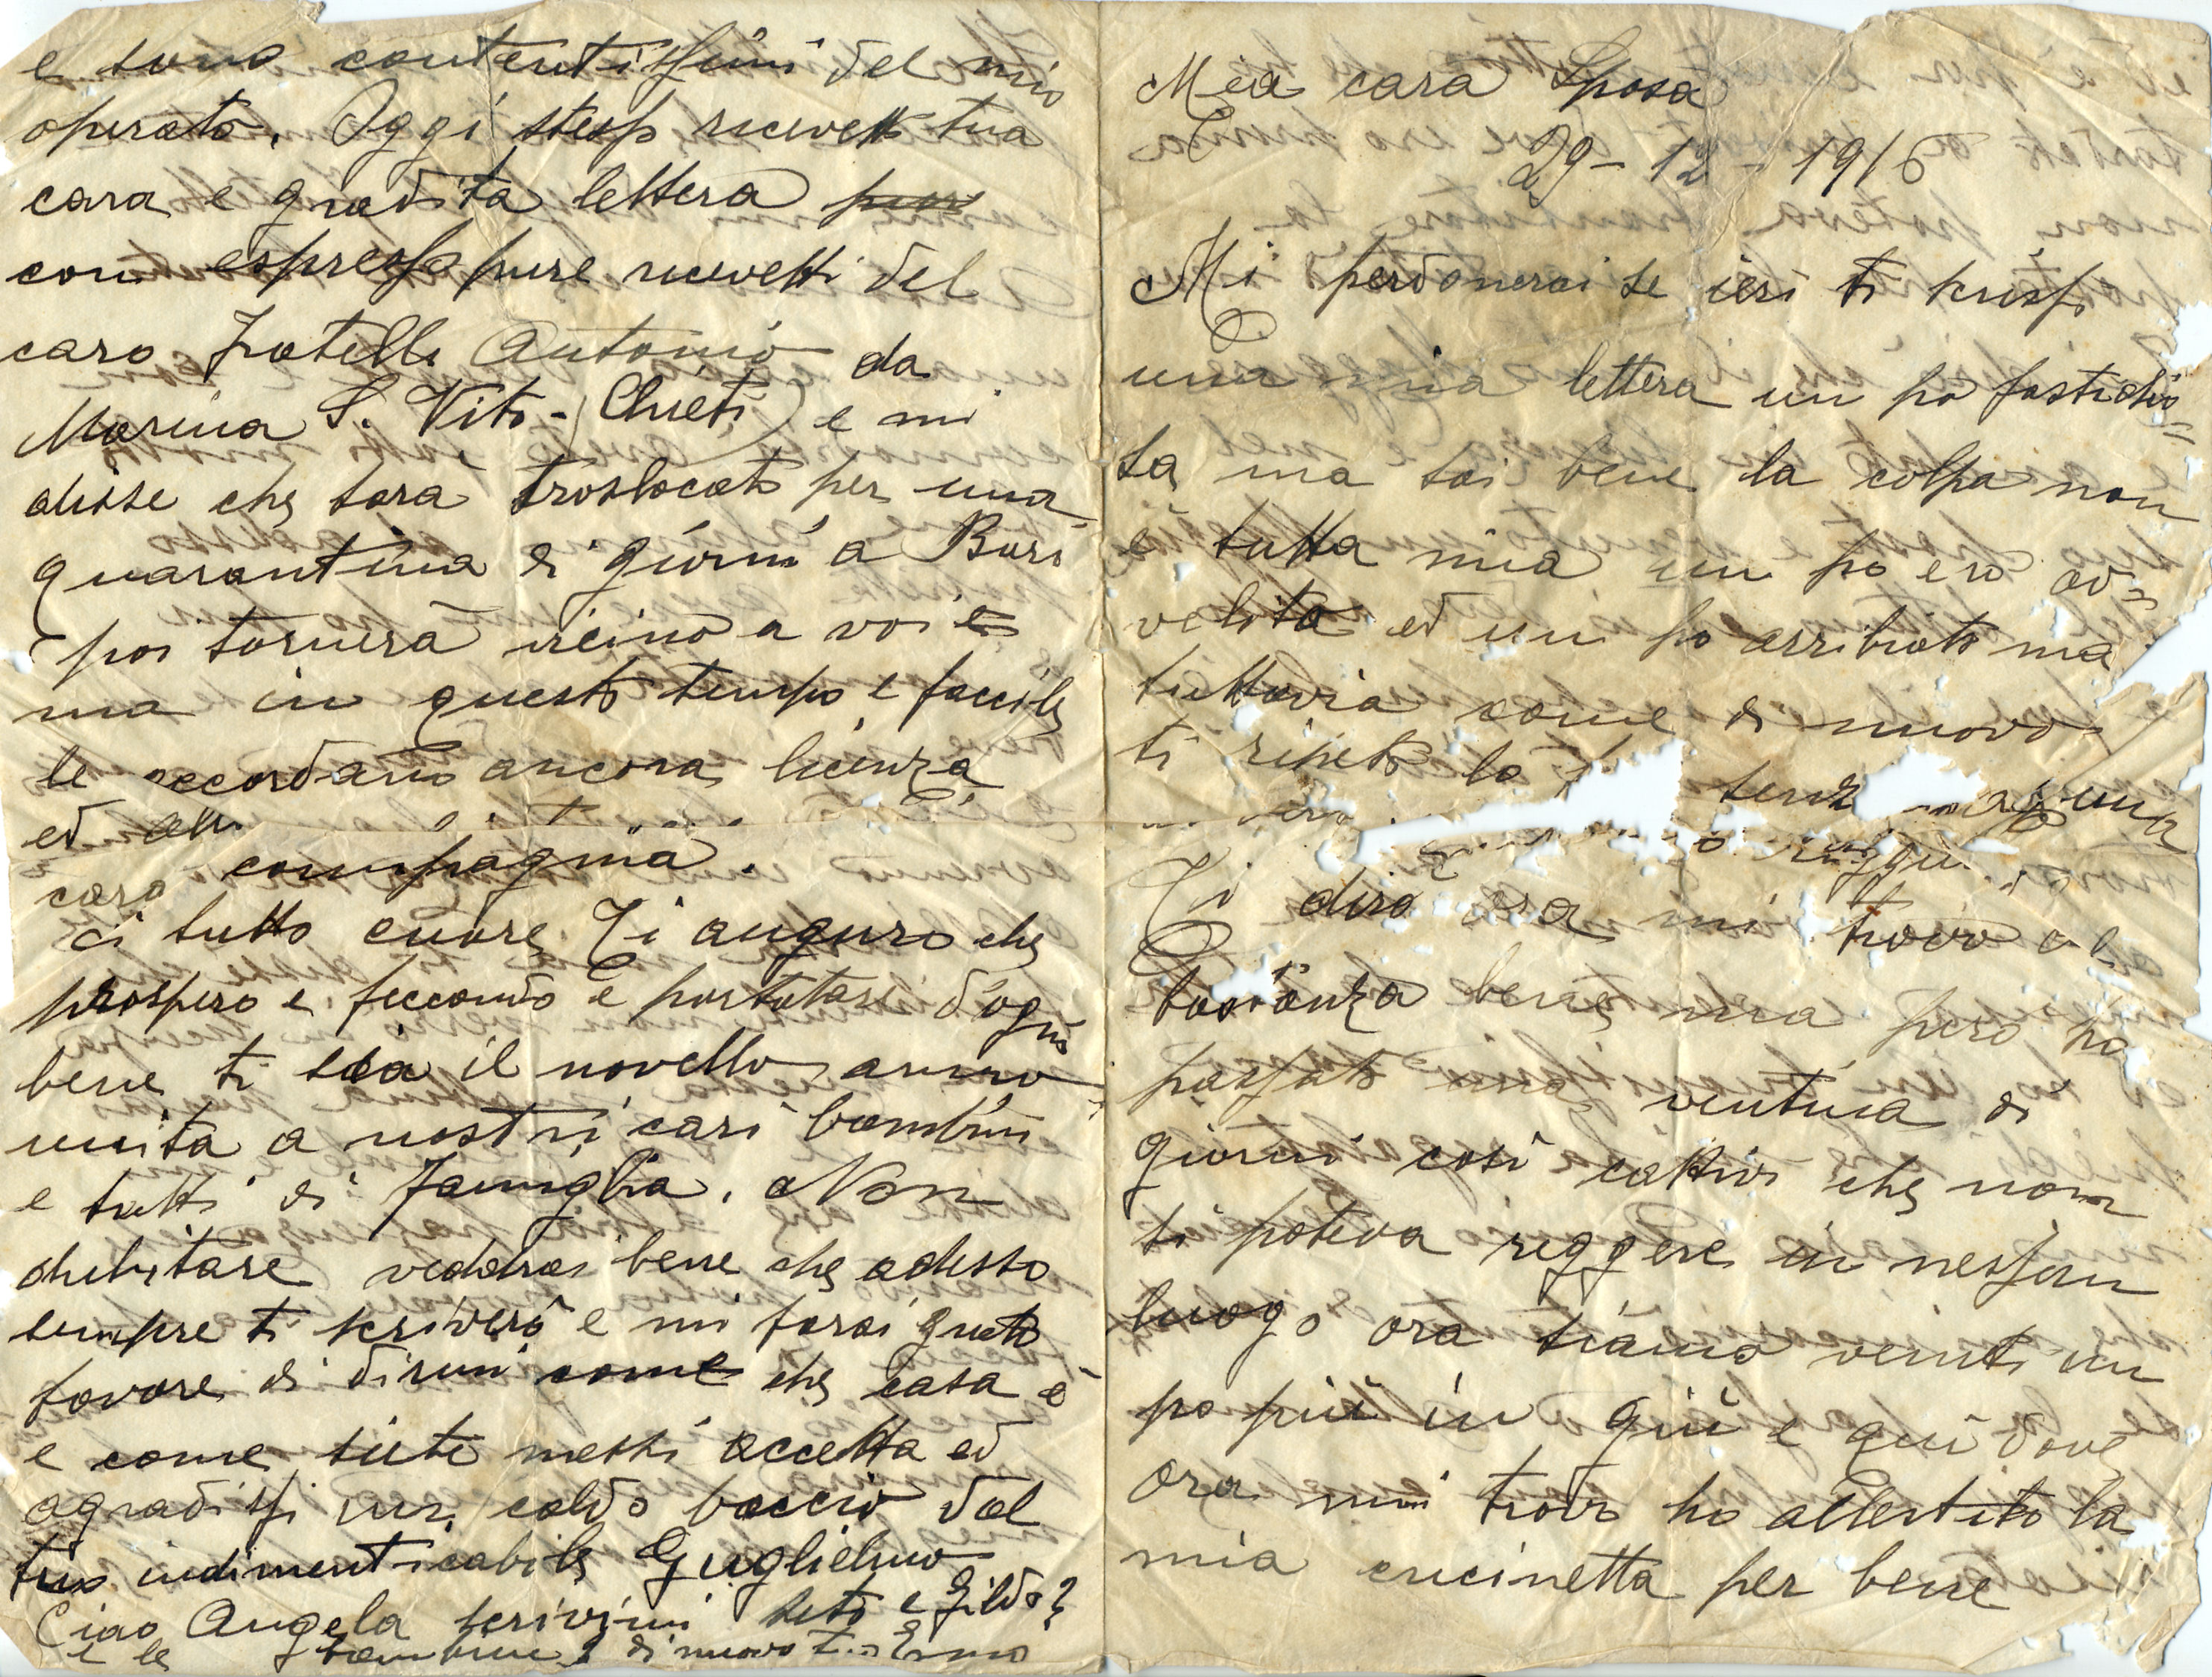 Mia cara Sposa
29-12-1916
Mi perdonerai se ieri ti scrissi
una mia lettera un po fastidio=
sa ma sai bene la colpa non
è tutta mia un po ero av=
velito ed un po arribiato ma
tuttavia come di nuovo
ti ripeto la
Ti dirò ora mi trovo ab
bastanza bene ma però ho
passato una ventina di
giorni così cattivi che non
si poteva reggere in nessun
luogo ora siamo venuti un
po più in giù e qui dove
ora mi trovo ho allestito la
mia cucinetta per bene
e sono contentissimi del mio
operato. Oggi stesso ricevetti tua
cara e gradita lettera
con espresso pure ricevetti del
caro fratello Antonio da
Marina S. Vito-(Chieti) e mi
disse che sara traslocato per una
quarantina di giorni a Bari
poi tornerà vicino a voi e
ma in questo tempo e faccile
le accordano ancora licenza
ed
cara compagnia.
di tutto cuore Ti auguro che
prospero e feccondo e portatasi d'ogni
bene ti sia il novello anno
unita a nostri cari bambini
e tutti di famiglia. Non
dubitare veddrai bene che adesso
sempre ti scriverò e mi farai questo
favore di dirmi come che casa è
e come siete messi accetta ed
agradissi un caldo baccio dal
tuo indimenticabile Guglielmo
Ciao Angela scrivimi seto e Gildo?
e le bambine? di nuovo